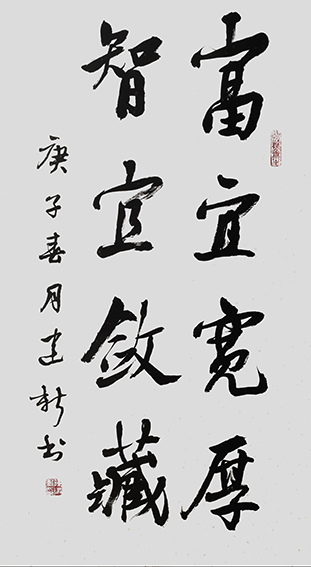 富宜宽厚
智宜敛藏
庚子春月建新书